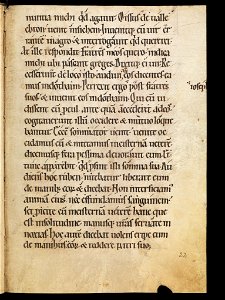 nuntia michi quid agatur. Missus de valle
ebron. venit in sichem. Invenitque eum vir er
rantem in agro. & interrogavit quid quereret.
At ille respondit. fratres meos quero. indica
michi ubi pascant greges. Dixitque ei vir. Re
cesserunt de loco isto. audivi eos dicentes. ea
mus in dothaim. Perrexit ergo post fratres
suos. & invenit eos in dothaim. Qui cum vi
dissent eum procul. antequam accederet ad eos.
cogitaverunt illum occidere & mutuo loque
bantur. Ecce somniator venit. venite oc
cidamus eum & mittamus in cisternam veterem.
dicamusque. fera pessima devoravit eum. &
tunc apparebit quid prosint illi somnia sua. Au
diens hoc ruben. nitebatur liberare eum
de manibus eorum. & dicebat. Non interficiatis
animam eius. nec effundatis sanguinem.
sed proicite eum in cisternam veterem hanc que
est in solitudine. manusque vestras servate in
noxias. Hoc autem dicebat volens eripere eum
de manibus eorum. & reddere patri suo.
ioseph
22